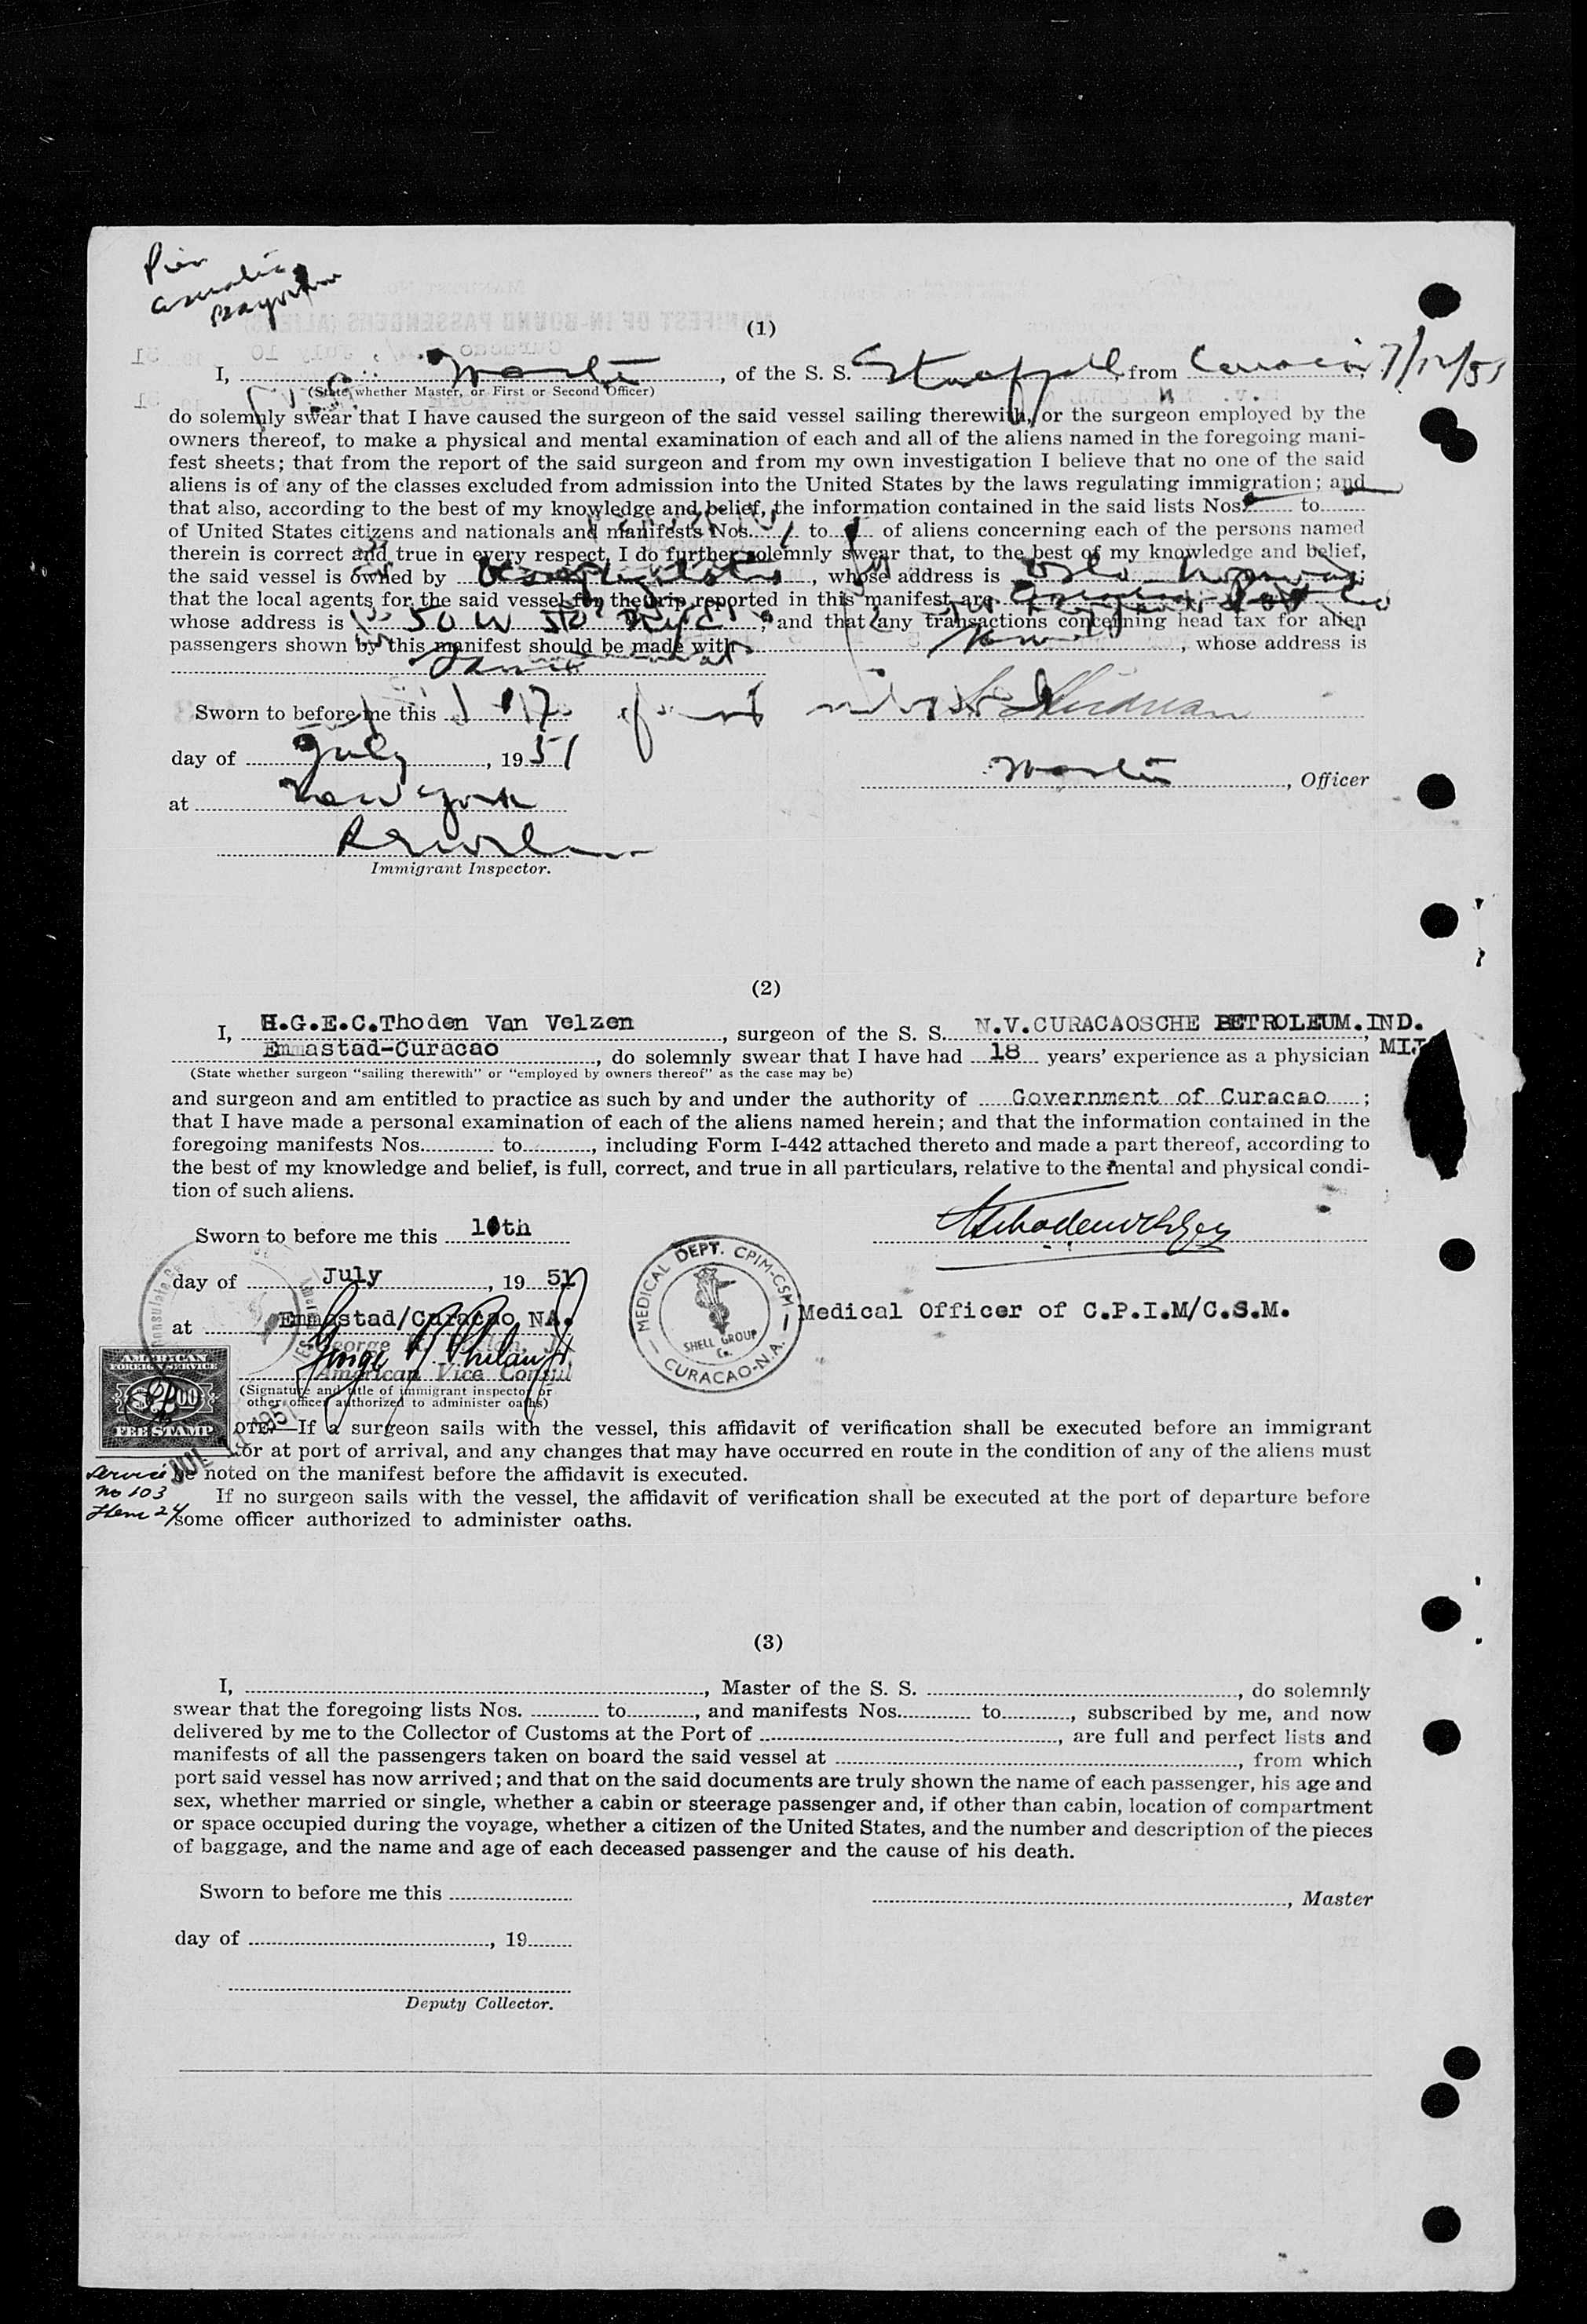 Pier
(1)
I, Master, of the S. S. from Curacao 7/12/51
(State whether Master, or First or Second Officer)
do solemnly swear that I have caused the surgeon of the said vessel sailing therewith, or the surgeon employed by the
owners thereof, to make a physical and mental examination of each and all of the aliens named in the foregoing mani-
fest sheets; that from the report of the said surgeon and from my own investigation I believe that no one of the said
aliens is of any of the classes excluded from admission into the United States by the laws regulating immigration; and
that also, according to the best of my knowledge and belief, the information contained in the said lists Nos. to
of United States citizens and nationals and manifests Nos. 1 to 1 of aliens concerning each of the persons named
therein is correct and true in every respect. I do further solemnly swear that, to the best of my knowledge and belief,
the said vessel is owned by , whose address is Oslo Norway;
that the local agents for the said vessel for the trip reported in this manifest are
whose address is 50 W St NYC; and that any transactions concerning head tax for alien
passengers shown by this manifest should be made with , whose address is
Same
Sworn to before me this 17
day of July, 1951
Master, Officer
at New York
Immigrant Inspector.
(2)
I, H.G.E.C.Thoden Van Velzen, surgeon of the S. S. N.V.CURACAOSCHE PETROLEUM.IND.
Emmastad-Curacao, do solemnly swear that I have had 18 years' experience as a physician MIJ
(State whether surgeon "sailing therewith" or "employed by owners thereof" as the case may be)
and surgeon and am entitled to practice as such by and under the authority of Government of Curacao;
that I have made a personal examination of each of the aliens named herein; and that the information contained in the
foregoing manifests Nos. to , including Form I-442 attached thereto and made a part thereof, according to
the best of my knowledge and belief, is full, correct, and true in all particulars, relative to the mental and physical condi-
tion of such aliens.
Sworn to before me this 10th
day of July, 1951
MEDICAL DEPT. CPIM-CSM
SHELL GROUP
Co.
CURACAO-N.A.
Medical Officer of C.P.I.M/C.S.M.
at Emmastad/Curacao NA.
American Vice Consul
(Signature and title of immigrant inspector or
other officer authorized to administer oaths)
AMERICAN
FOREIGN SERVICE
$2.00
FEE STAMP
OTE.—If a surgeon sails with the vessel, this affidavit of verification shall be executed before an immigrant
tor at port of arrival, and any changes that may have occurred en route in the condition of any of the aliens must
be noted on the manifest before the affidavit is executed.
Service
No 103
Item 24
If no surgeon sails with the vessel, the affidavit of verification shall be executed at the port of departure before
some officer authorized to administer oaths.
(3)
I, , Master of the S. S. , do solemnly
swear that the foregoing lists Nos. to , and manifests Nos. to , subscribed by me, and now
delivered by me to the Collector of Customs at the Port of , are full and perfect lists and
manifests of all the passengers taken on board the said vessel at , from which
port said vessel has now arrived; and that on the said documents are truly shown the name of each passenger, his age and
sex, whether married or single, whether a cabin or steerage passenger and, if other than cabin, location of compartment
or space occupied during the voyage, whether a citizen of the United States, and the number and description of the pieces
of baggage, and the name and age of each deceased passenger and the cause of his death.
Sworn to before me this
, Master
day of , 19
Deputy Collector.